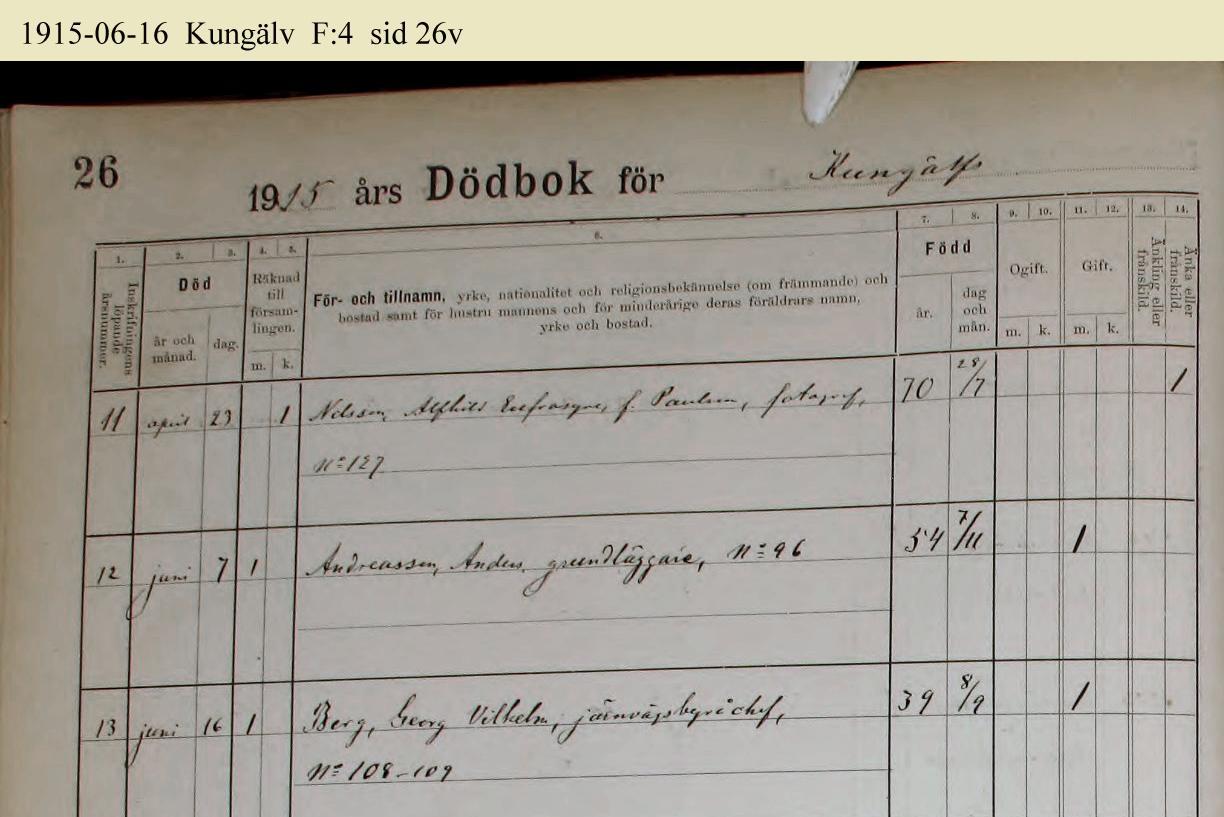 1915-06-16 Kungälv F:4 sid 26v
26
1915 års Dödbok för Kungälfs
1. 2. 3. 4. 5. 6. 7. 8. 9. 10. 11. 12. 13. 14.
Inskrifningens löpande årsnummer.
Död
år och månad.
dag.
Räknad till församlingen.
m. k.
För- och tillnamn, yrke, nationalitet och religionsbekännelse (om främmande) och
bostad samt för hustru mannens och för minderårige deras föräldrars namn,
yrke och bostad.
Född
år.
dag och mån.
Ogift.
m. k.
Gift.
m. k.
Änkling eller frånskild.
Änka eller frånskild.
11 april 23 1 Nilsson, Alfhild Eufrosyne, f. Paulsen, fotograf, 70 28/7 1
No 127
12 juni 7 1 Andreasson, Anders, grundläggare, No 96 54 7/11 1
13 juni 16 1 Berg, Georg Vilhelm, järnvägsbyråchef, 39 8/9 1
No 108-109